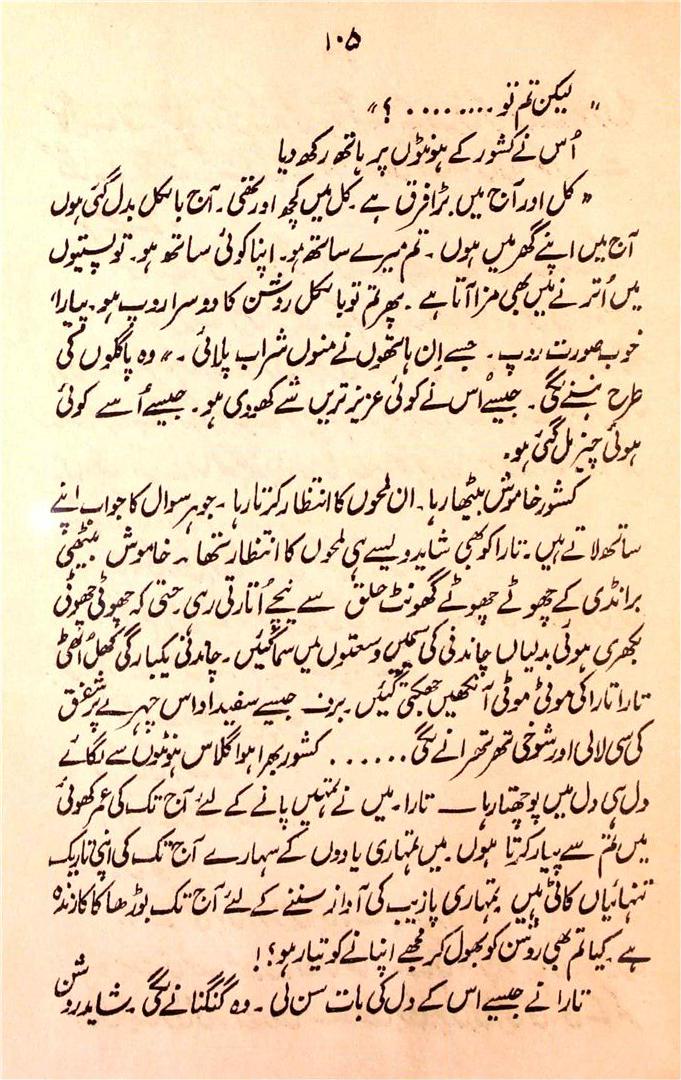 ۱۰۵
" لیکن تم تو ........ ؟ "
اُس نے کشور کے ہونٹوں پر ہاتھ رکھ دیا
" کل اور آج میں بڑا فرق ہے ۔ کل میں کچھ اور تھی ۔ آج بالکل بدل گئی ہوں
آج میں اپنے گھر میں ہوں ۔ تم میرے ساتھ ہو۔ اپنا کوئی ساتھ ہو۔ تو پستیوں
میں اُترنے میں بھی مزا آتا ہے ۔ پھر تم تو بالکل روشن کا دوسرا روپ ہو ۔ پیارا،
خوب صورت روپ ۔ جسے اِن ہاتھوں نے منوں شراب پلائی ۔ " وہ پاگلوں کی
طرح ہنسنے لگی ۔ جیسے اُس نے کوئی عزیز ترین شے کھو دی ہو ۔ جیسے اُسے کوئی
ہوئی چیز مل گئی ہو۔
کشور خاموش بیٹھا رہا ۔ ان لمحوں کا انتظار کرتا رہا ۔ جو ہر سوال کا جواب اپنے
ساتھ لاتے ہیں ۔ تارا کو بھی شاید ویسے ہی لمحوں کا انتظار تھا ۔ خاموش بیٹھی
برانڈی کے چھوٹے چھوٹے گھونٹ حلق سے نیچے اُتارتی رہی ۔ حتیٰ کہ چھوٹی چھوٹی
بکھری ہوئی بدلیاں چاندنی کی سیمیں وسعتوں میں سما گئیں ۔ چاندنی یکبارگی کھل اُٹھی
تارا تارا کی موٹی موٹی آنکھیں جھپکتی گئیں ۔ برف جیسے سفید اداس چہرے پر شفق
کی سی لالی اور شوخی تھرتھرانے لگی ...... کشور بھرا ہوا گلاس ہونٹوں سے لگائے
دل ہی دل میں پوچھتا رہا ـــ تارا ۔ میں نے تمہیں پانے کے لئے آج تک کی عمر کھوئی
میں تم سے پیار کرتا ہوں ۔ میں تمہاری یادوں کے سہارے آج تک کی اپنی تاریک
تنہائیاں کاٹی ہیں ۔ تمہاری پازیب کی آواز سننے کے لئے آج تک بوڑھا کاکا زندہ
ہے ۔ کیا تم بھی روشن کو بھول کر مجھے اپنانے کو تیار ہو ؟!
تارا نے جیسے اس کے دل کی بات سن لی ۔ وہ گنگنانے لگی ۔ شاید روشن